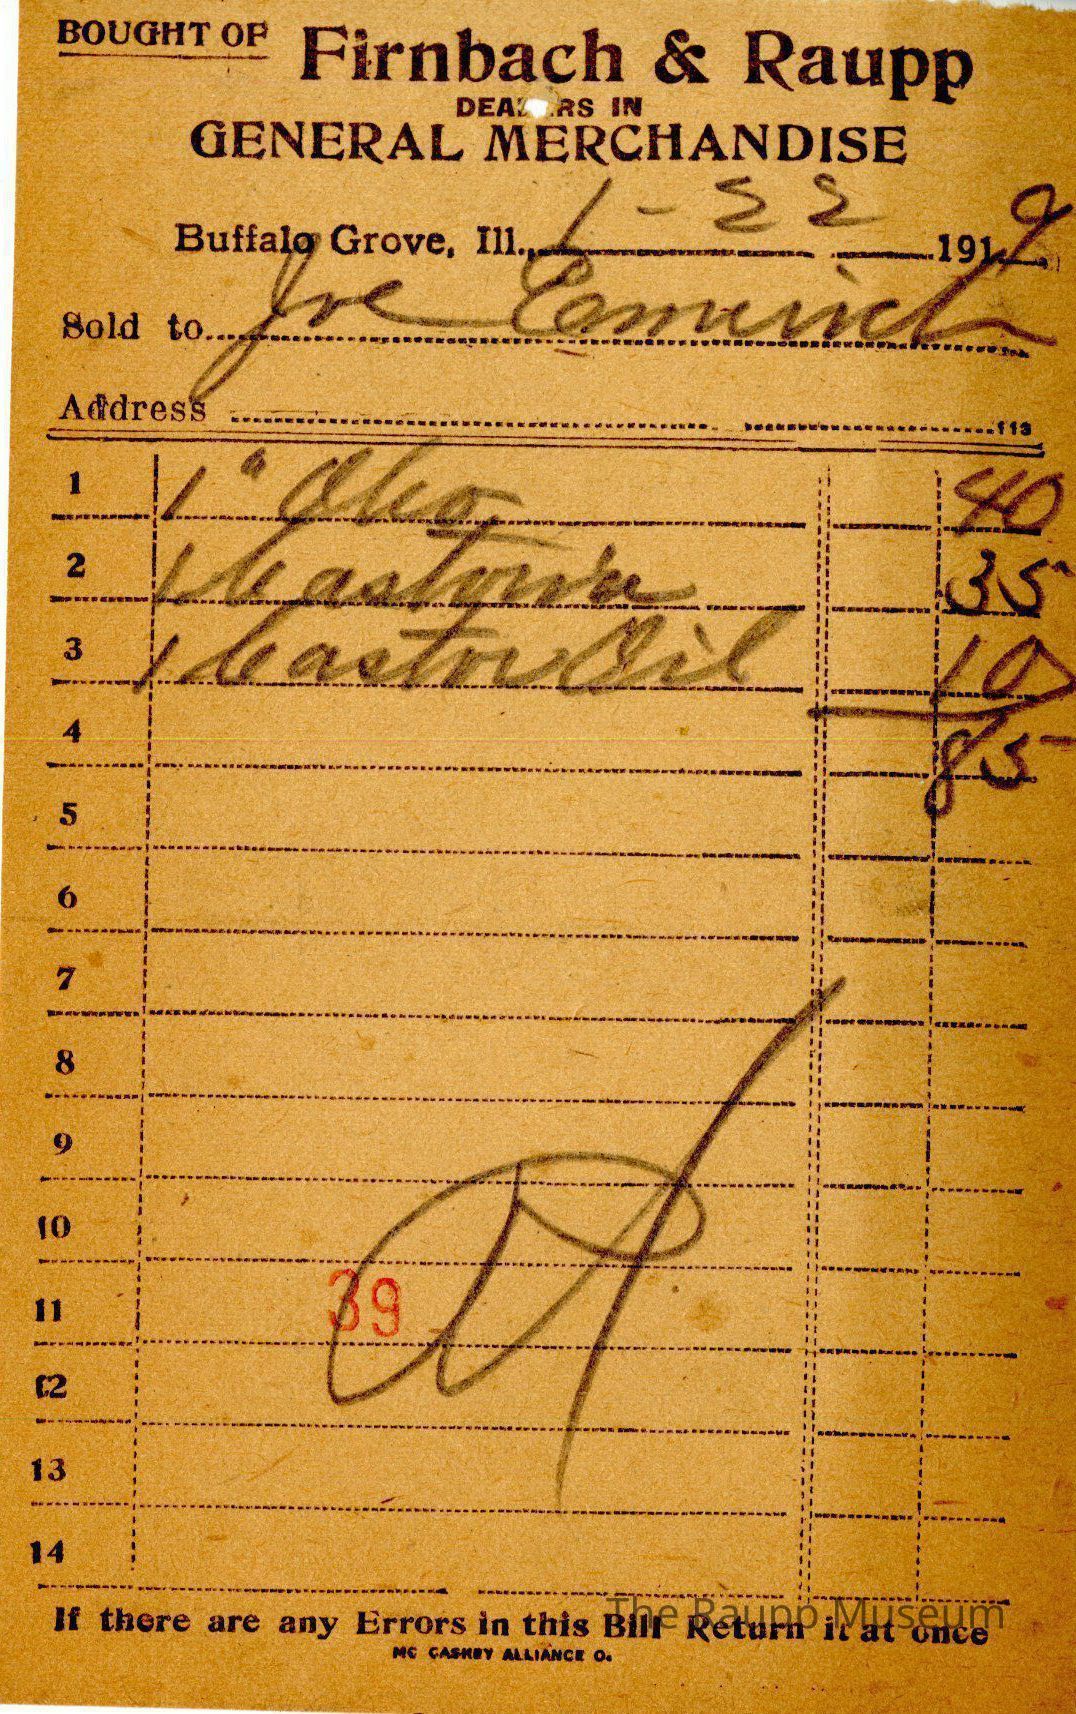 BOUGHT OF Firnbach & Raupp
DEALERS IN
GENERAL MERCHANDISE
Buffalo Grove, Ill., 1-22 1919
Sold to Joe Emmerich
Address 113
1 1# Oleo 40
2 1 Castoria 35
3 1 Castor Oil 10
4 85
5
6
7
8
9
10
39
11
12
13
14
The Raupp Museum
If there are any Errors in this Bill Return it at once
MC CASKEY ALLIANCE O.